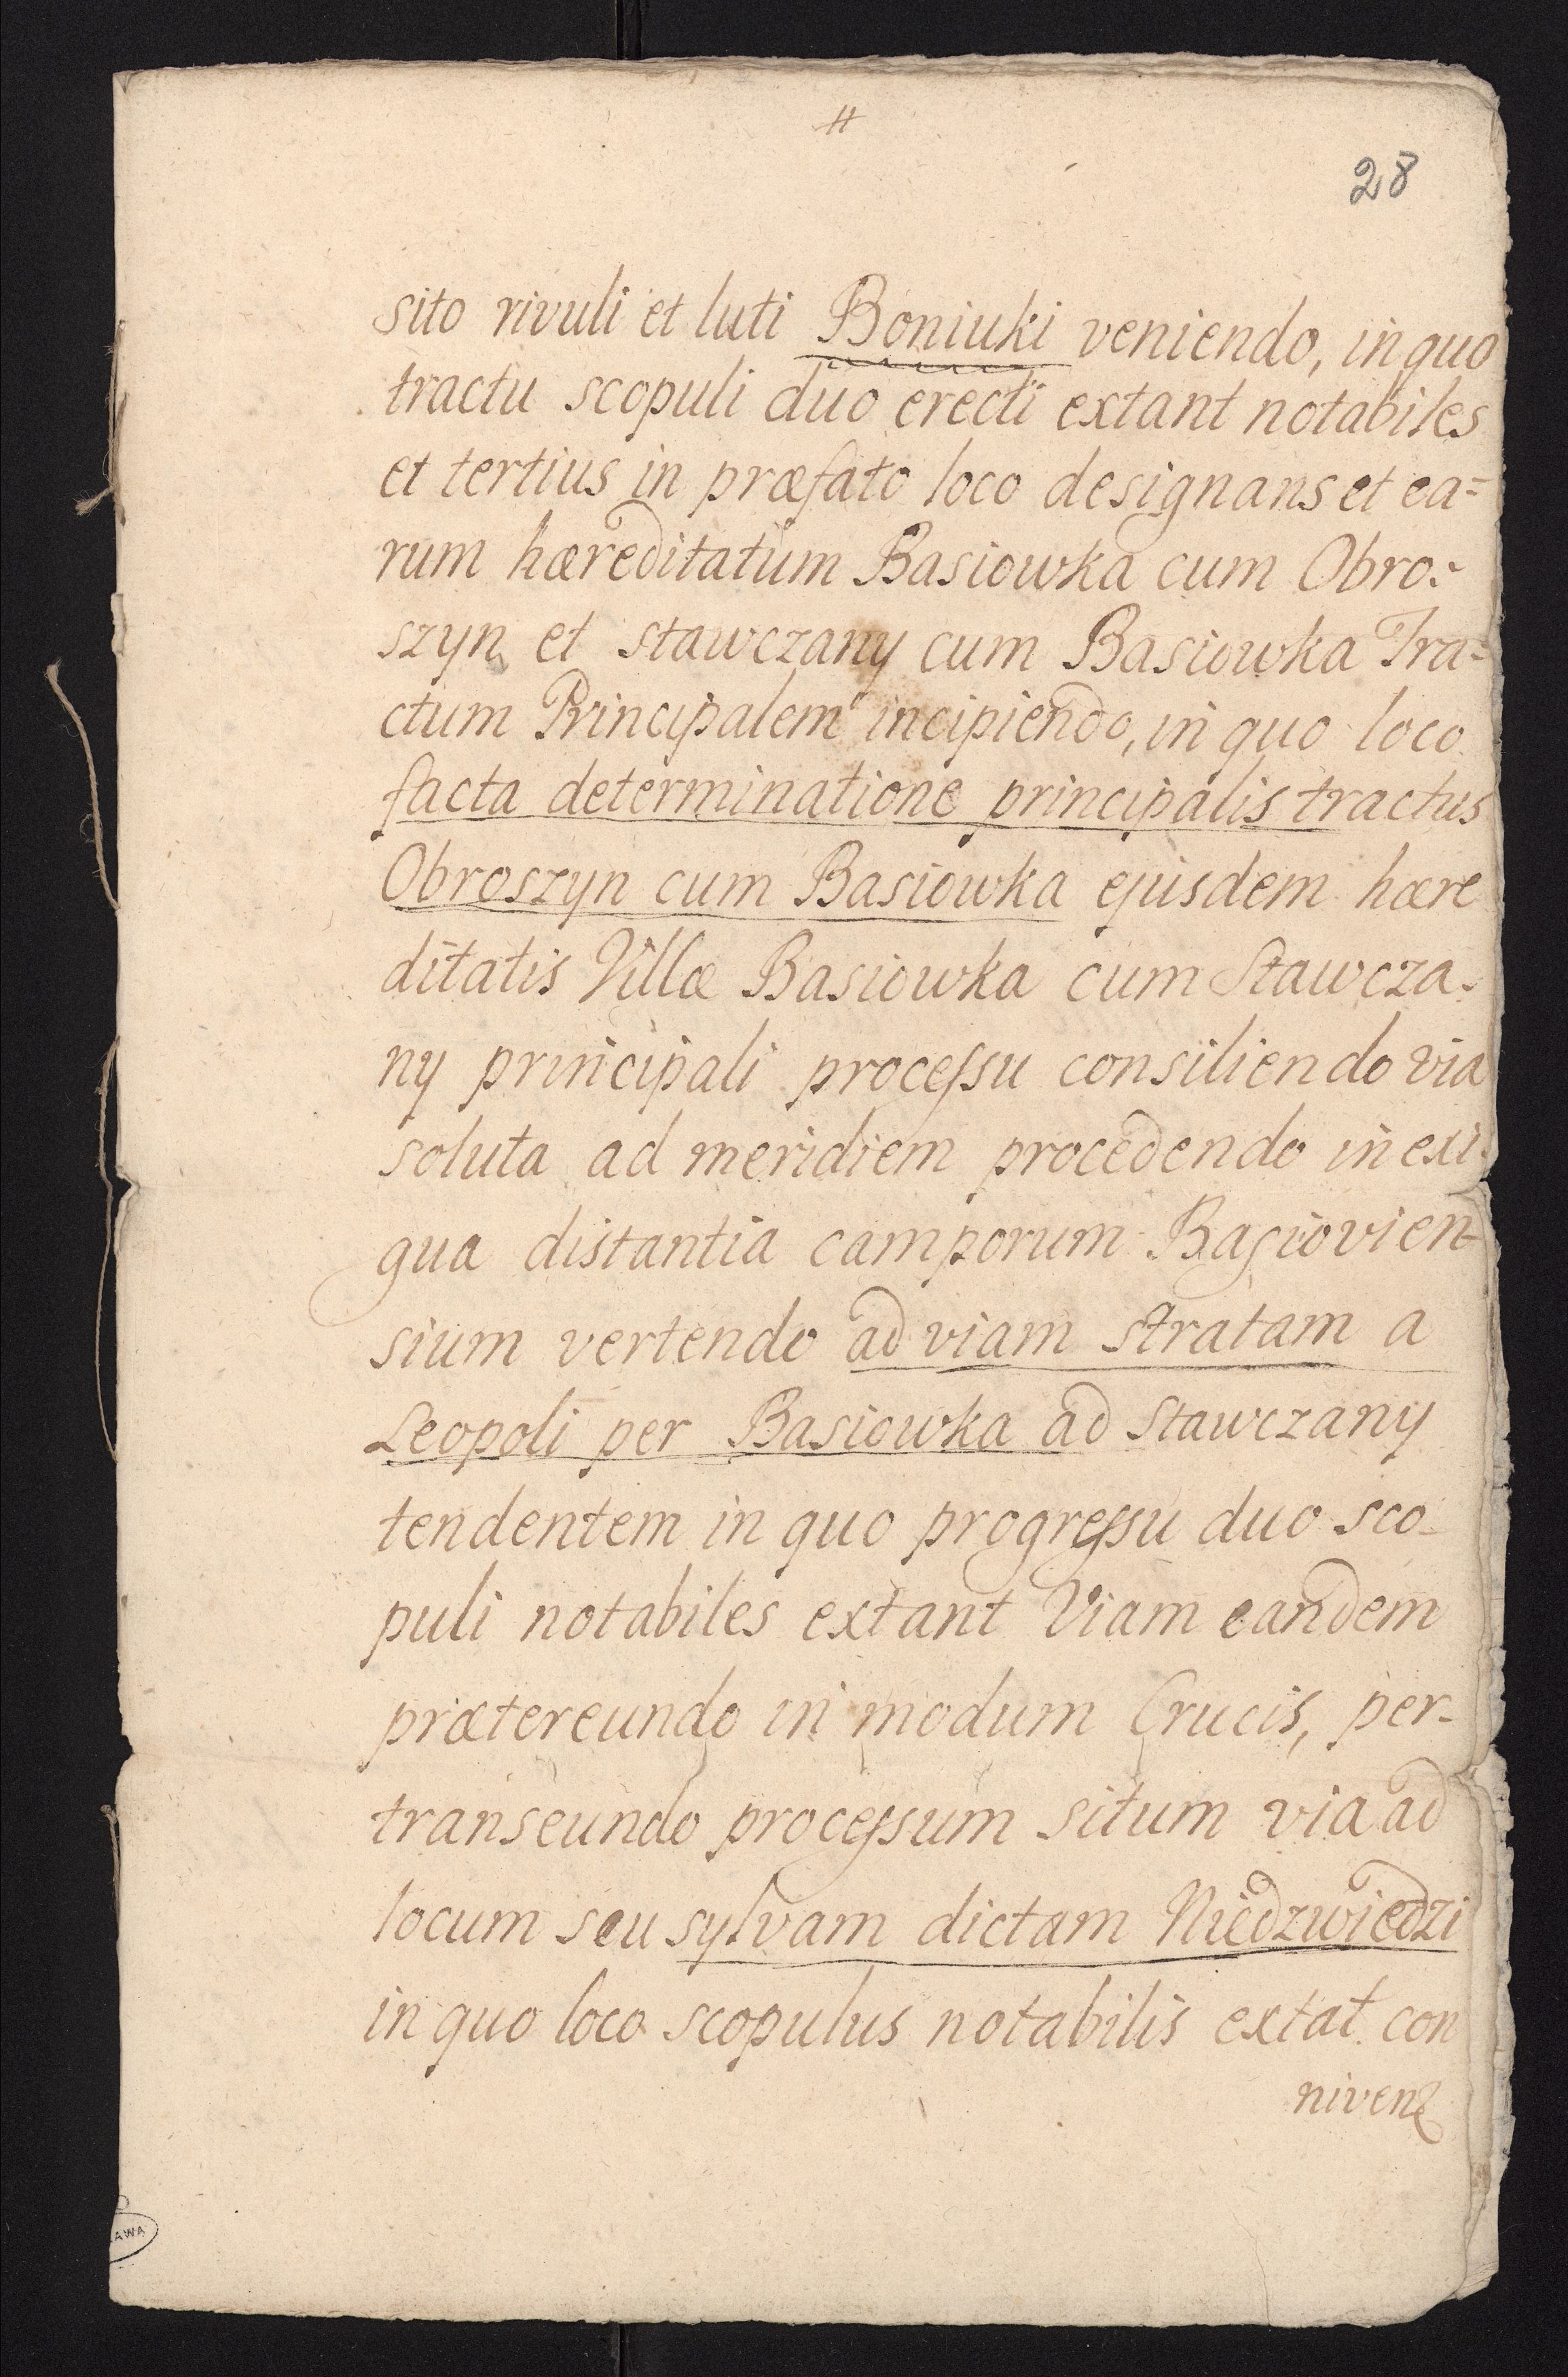 #
28
sito rivuli et luti Boniuki veniendo, in quo
tractu scopuli duo erecti extant notabiles
et tertius in præfato loco designans et ea=
rum hæreditatum Basiowka cum Obro=
szyn et Stawczany cum Basiowka Tra=
ctum Principalem incipiendo, in quo loco
facta determinatione principalis tractus
Obroszyn cum Basiowka ejusdem hære
ditatis Villæ Basiowka cum Stawcza-
ny principali processu consiliendo via
soluta ad meridiem procedendo in exi-
gua distantia camporum Basiovien-
sium vertendo ad viam stratam a
Leopoli per Basiowka ad Stawczany
tendentem in quo progressu duo sco-
puli notabiles extant Viam eandem
prætereundo in modum Crucis, per-
transeundo processum situm via ad
locum seu sylvam dictam Niedzwiedzi
in quo loco scopulus notabilis extat con
niven
AWA